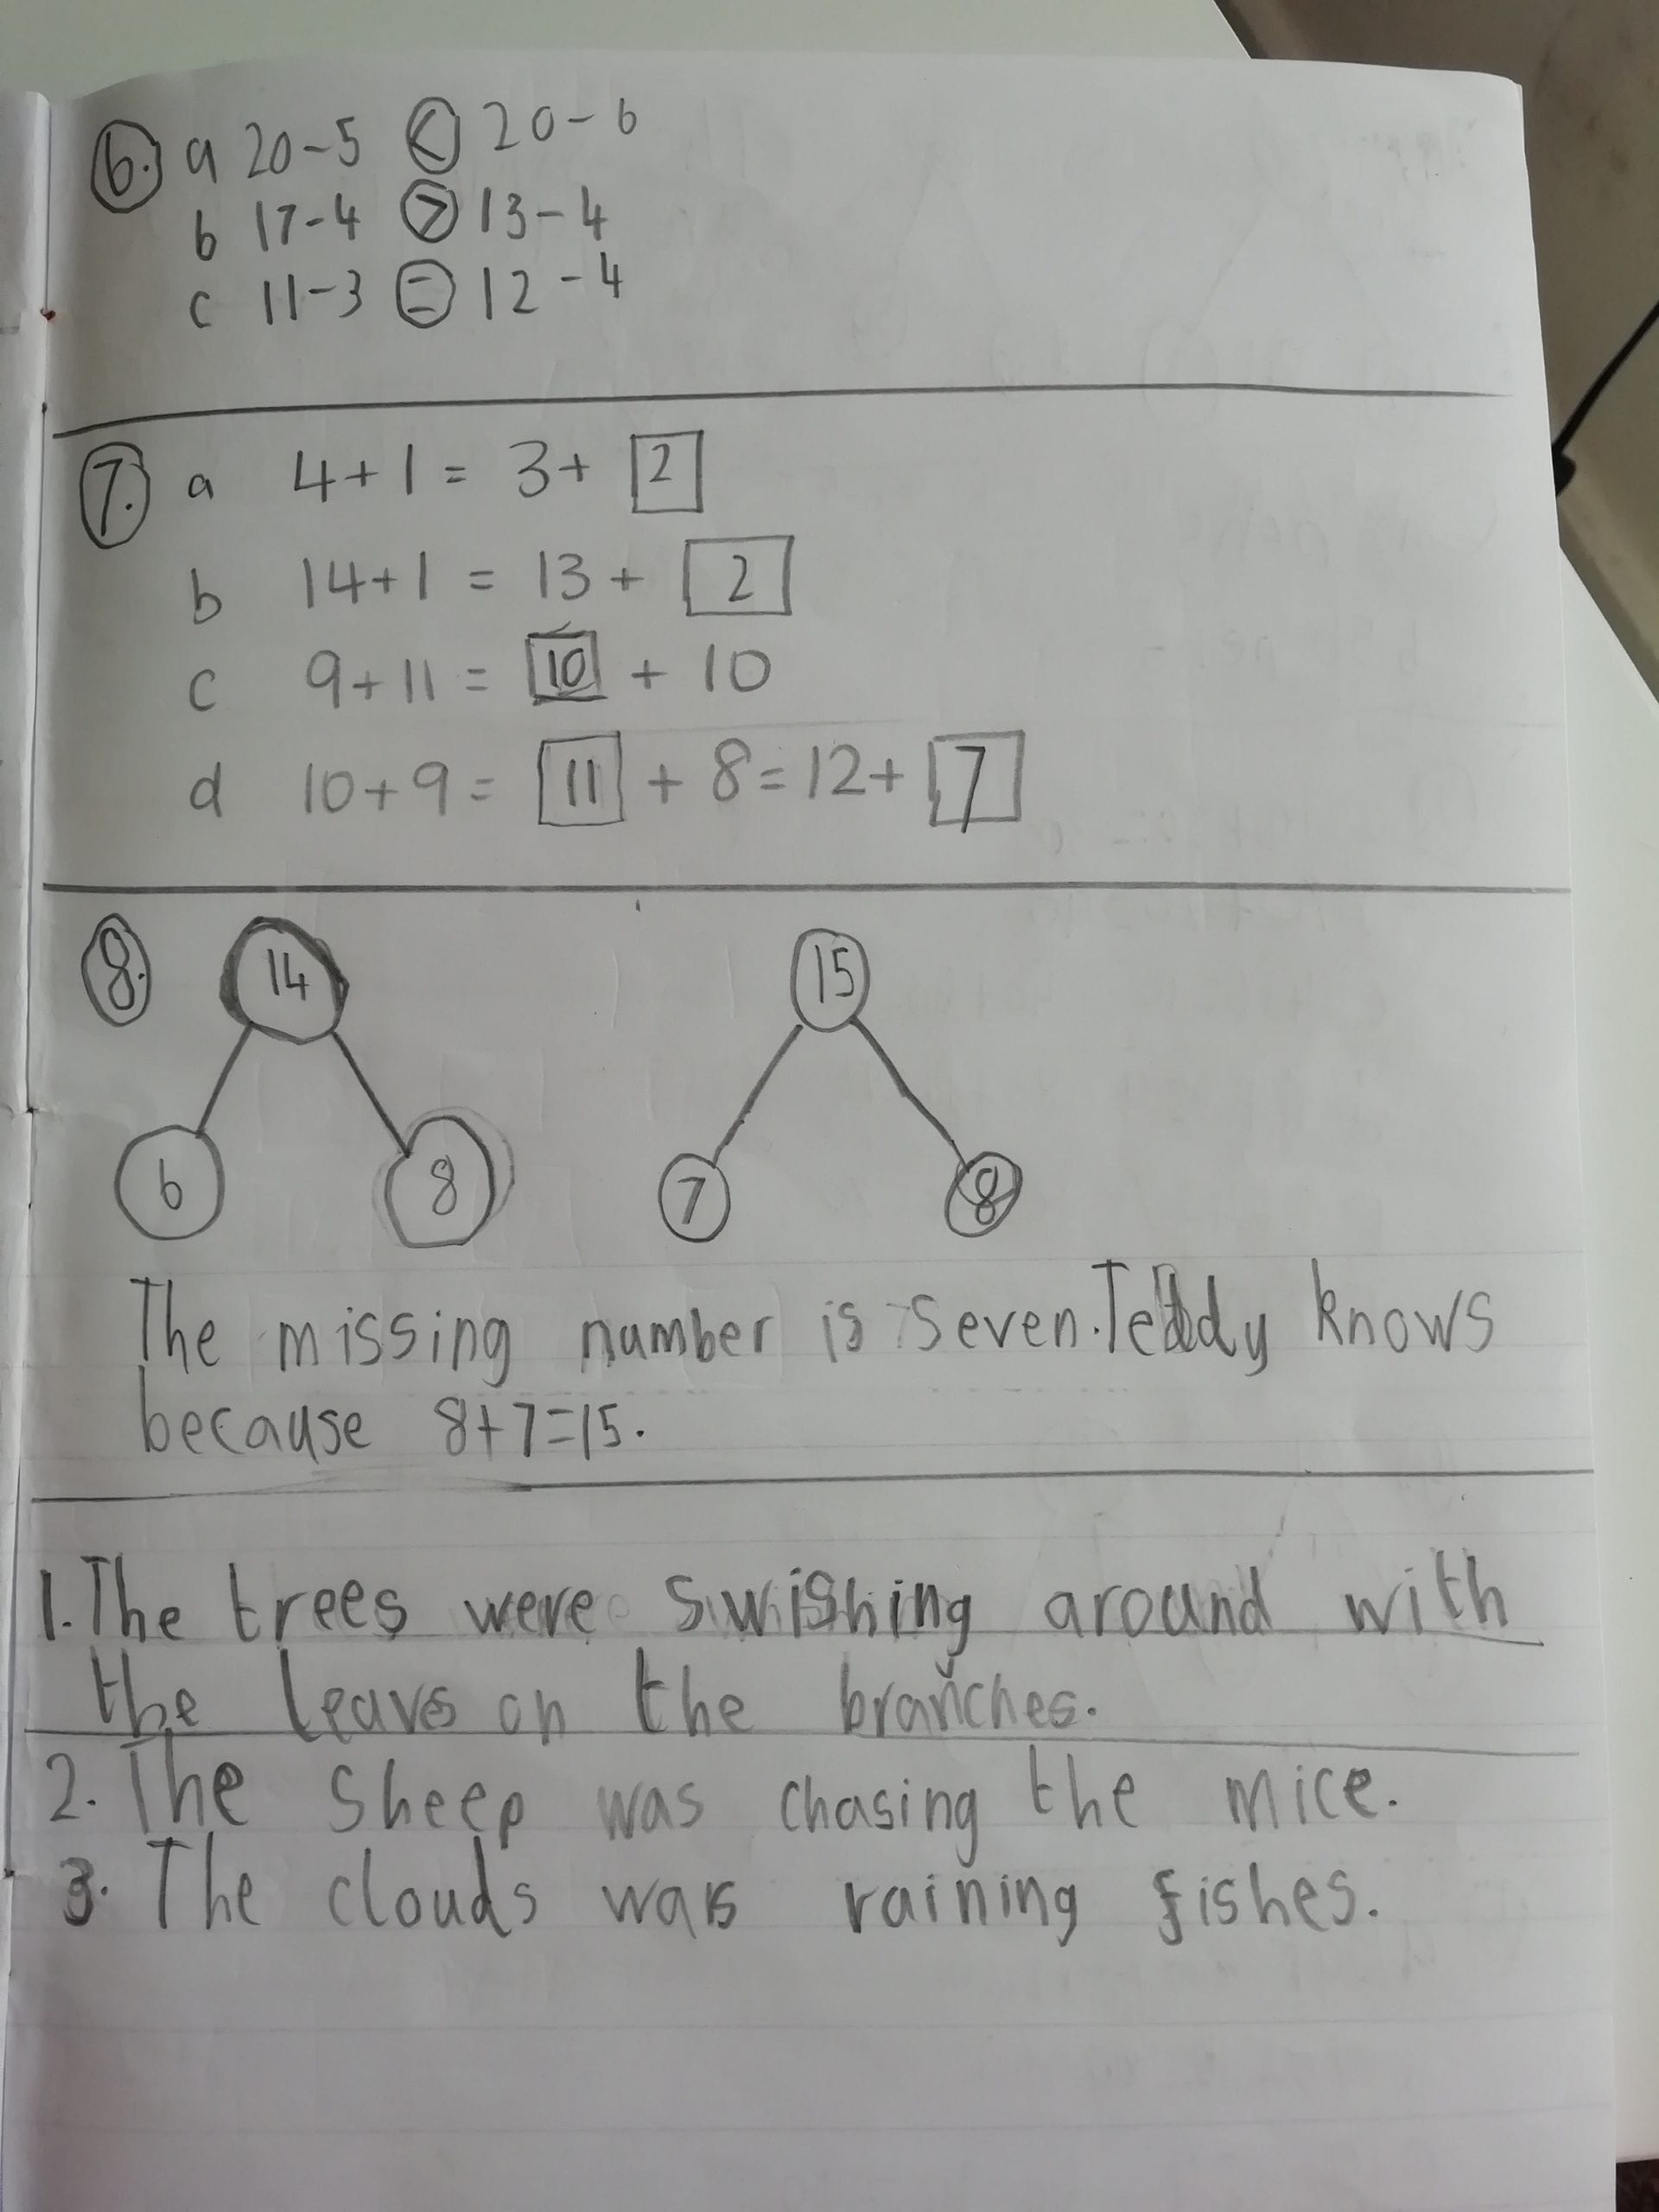 6. a 20-5 < 20-6
b 17-4 > 13-4
c 11-3 = 12-4
7. a 4+1 = 3+ 2
b 14+1 = 13+ 2
c 9+11 = 10 + 10
d 10+9 = 11 + 8 = 12+ 7
8. 14 15
6 8 7 8
The missing number is seven. Teddy knows
because 8+7=15.
1. The trees were swishing around with
the leavs on the branches.
2. The sheep was chasing the mice.
3. The clouds was raining fishes.